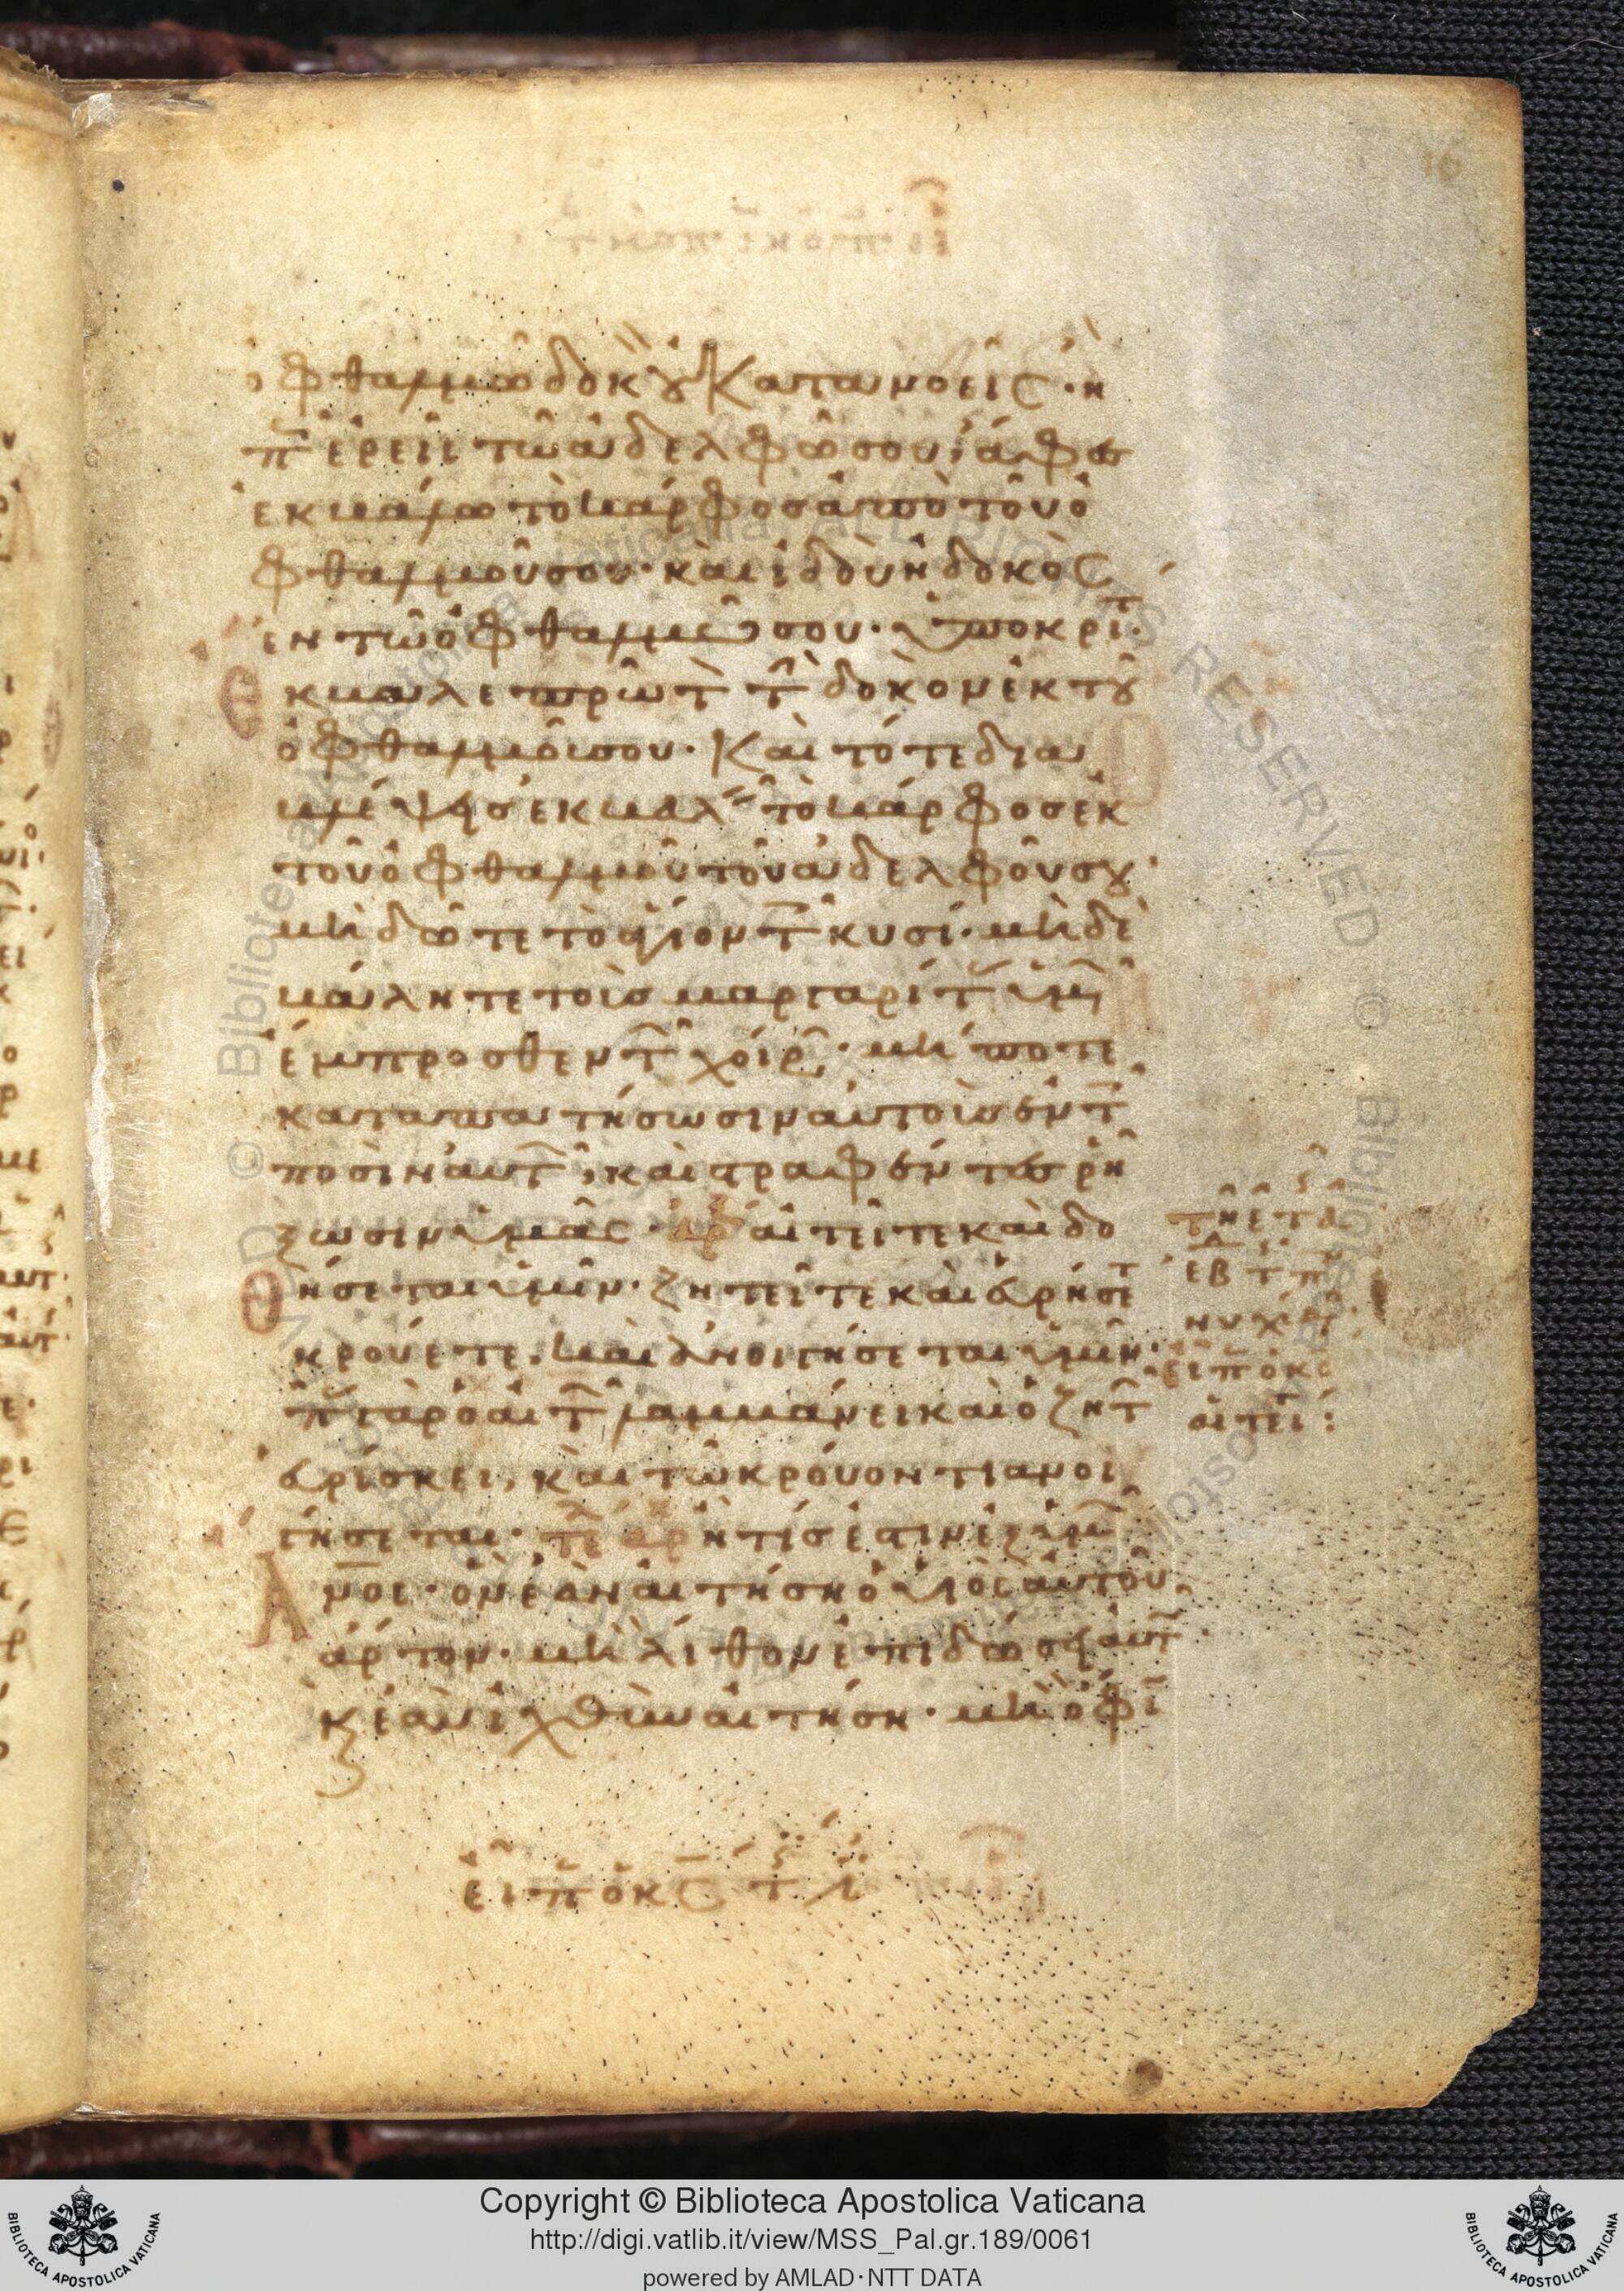 16
ὀφθαλμῶ δοκὸν οὐ κατανοεῖς· ἢ
π ἐρεῖς τῶ ἀδελφῶ σου, ἄφες
ἐκβάλω τὸ κάρφος ἀπὸ τοῦ ὀ
φθαλμοῦ σου· καὶ ἰδοὺ ἡ δοκὸς
ἐν τῶ ὀφθαλμῶ σου· ὑποκριτ
ἔκβαλε πρῶτ τ δοκὸν ἐκ τοῦ
ὀφθαλμοῦ σου· καὶ τότε δια
βλέψης ἐκβαλ τὸ κάρφος ἐκ
τοῦ ὀφθαλμοῦ τοῦ ἀδελφοῦ σου·
μὴ δῶτε τὸ ἅγιον τ κυσί· μὴ δὲ
βάλητε τοὺς μαργαρίτ ὑμ
ἔμπροσθεν τ χοίρ· μήποτε
καταπατήσωσιν αὐτοὺς ἐν τ
ποσὶν αὐτ, καὶ στραφέντες ῥή
ξωσιν ὑμᾶς· αἰτεῖτε καὶ δο
θήσεται ὑμῖν· ζητεῖτε καὶ εὑρήσετ
κρούετε, καὶ ἀνοιγήσεται ὑμῖν·
π γὰρ ὁ αἰτ λαμβάνει καὶ ὁ ζητ
εὑρίσκει, καὶ τῶ κρούοντι ἀνοι
γήσεται· ἢ τίς ἐστιν ἐξ ὑμ
ἄνοι· ὃν ἐὰν αἰτήση ὁ υἱὸς αὐτοῦ
ἄρτον· μὴ λίθον ἐπιδώσει αὐτ·
κ ἐὰν ἰχθὺν αἰτήση· μὴ ὄφι
εἶπ ὁ κς τ
Copyright © Biblioteca Apostolica Vaticana
http://digi.vatlib.it/view/MSS_Pal.gr.189/0061
powered by AMLAD·NTT DATA
BIBLIOTECA APOSTOLICA VATICANA
BIBLIOTECA APOSTOLICA VATICANA